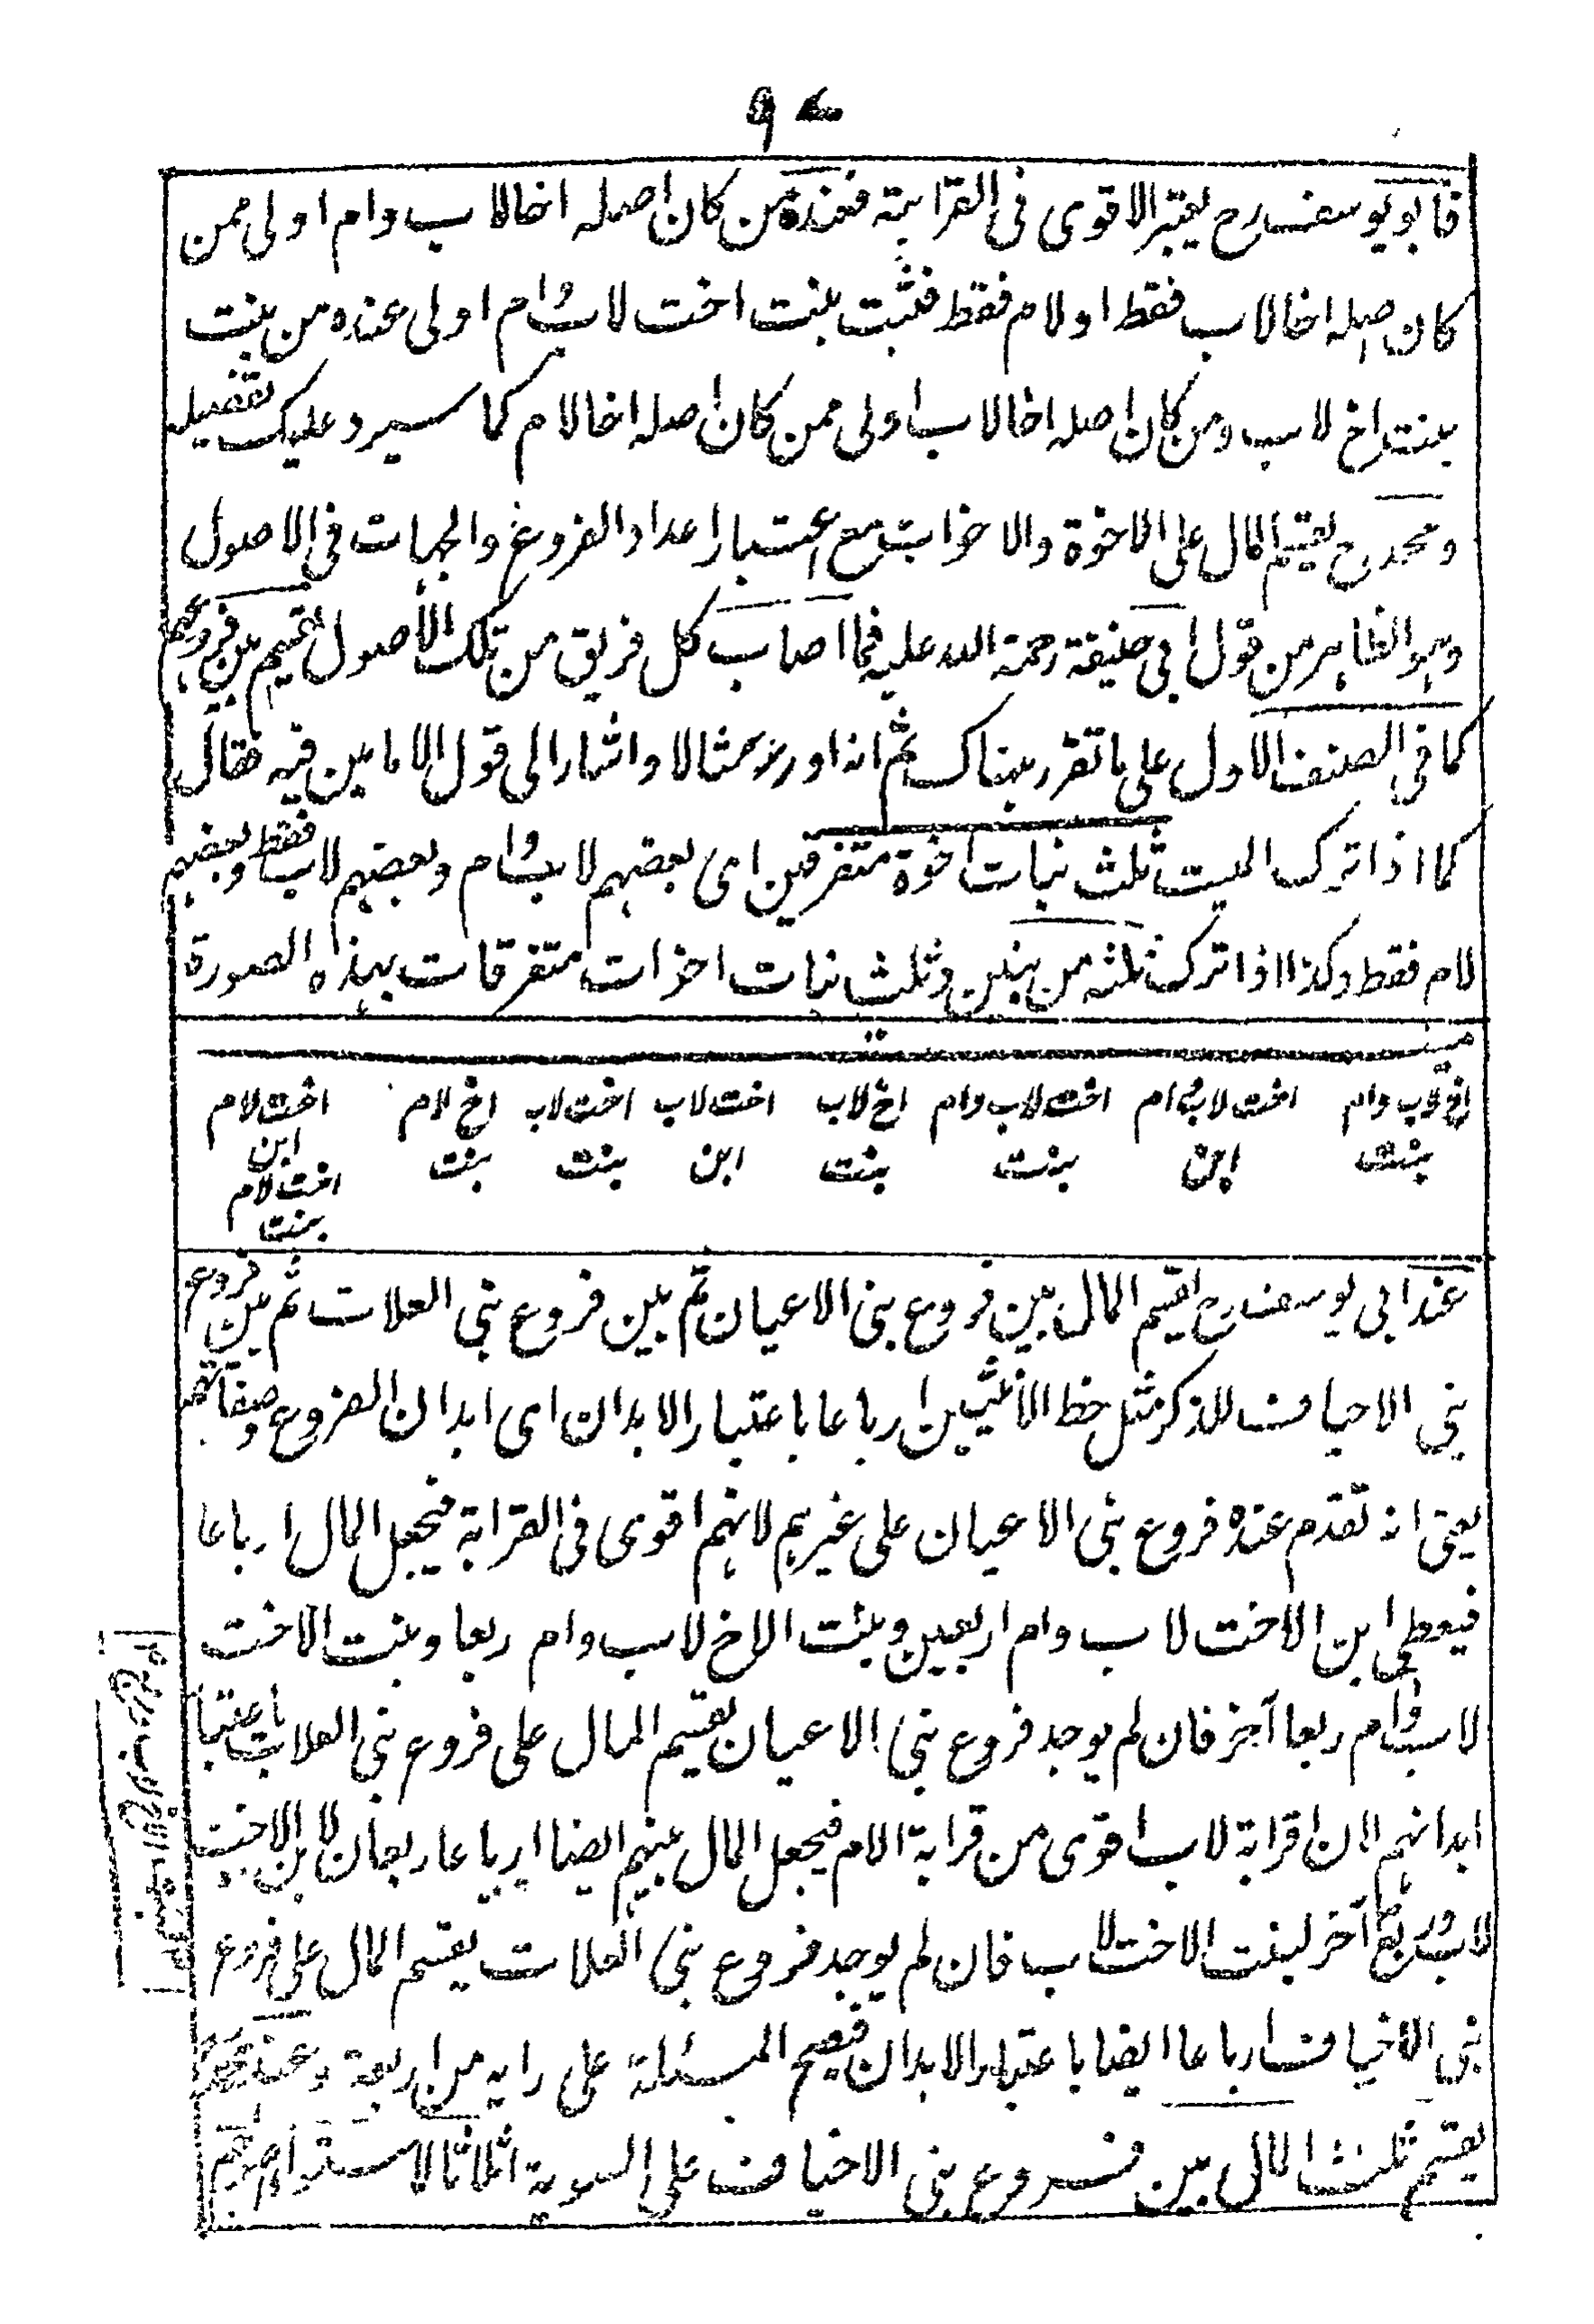 فابو يوسف رح يعتبر الاقوى فى القرابة فعنده من كان اصله اخا لاب وام اولى ممن
كان اصله اخا لاب فقط او لام فقط فبنت بنت اخت لاب وام اولى عنده من بنت
بنت اخ لاب ومن كان اصله اخا لاب اولى ممن كان اصله اخا لام كما سيرد عليك تفصيله
ومحمد رح يقسم المال على الاخوة والاخوات مع اعتبار اعداد الفروع والجهات فى الاصول
وهو الظاهر من قول ابى حنيفة رحمة الله عليه فما اصاب كل فريق من تلك الاصول يقسم بين فروعهم
كما فى الصنف الاول على ما تقرر هناك ثم انه اورد مثالا واشار الى قول الامامين فيه فقال
كما اذا ترك الميت ثلث بنات اخوة متفرقين اى بعضهم لاب وام وبعضهم لاب فقط وبعضهم
لام فقط وكذا اذا ترك ثلثه من بنين وثلث بنات اخوات متفرقات بهذه الصورة
ميـــت
اخ لاب وام اخت لاب وام اخت لاب وام اخ لاب اخت لاب اخت لاب اخ لام اخت لام
بنت ابن بنت بنت ابن بنت بنت ابن
اخت لام
بنت
عند ابى يوسف رح يقسم المال بين فروع بنى الاعيان ثم بين فروع بنى العلات ثم بين فروع
بنى الاخياف للذكر مثل حظ الانثيين ارباعا باعتبار الابدان اى ابدان الفروع وصفاتهم
يعنى انه تقدم عنده فروع بنى الاعيان على غيرهم لانهم اقوى فى القرابة فيجعل المال ارباعا
فيعطى ابن الاخت لاب وام اربعين وبنت الاخ لاب وام ربعا وبنت الاخت
لاب وام ربعا آخر فان لم يوجد فروع بنى الاعيان يقسم المال على فروع بنى العلات باعتبار
ابدانهم لان قرابة لاب اقوى من قرابة الام فيجعل المال بينهم ايضا ارباعا ربعان لابن الاخت
لاب وربع آخر لبنت الاخت لاب فان لم يوجد فروع بنى العلات يقسم المال على فروع
بنى الاخياف ارباعا ايضا باعتبار الابدان فيصح المسئلة على رايه من اربعة وعند محمد رح
يقسم ثلث المال بين فروع بنى الاخياف على السوية اثلاثا لاستواء اصولهم